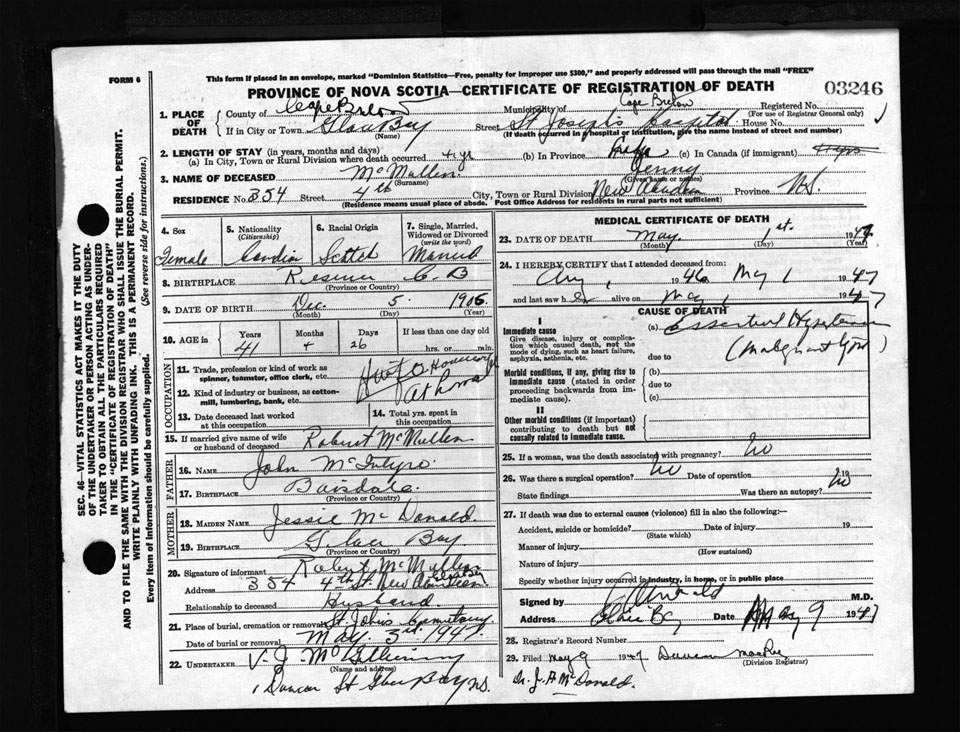 FORM 6
This form if placed in an envelope, marked "Dominion Statistics—Free, penalty for improper use $300," and properly addressed will pass through the mail "FREE"
PROVINCE OF NOVA SCOTIA—CERTIFICATE OF REGISTRATION OF DEATH
03246
1. PLACE OF DEATH
County of Cape Breton Municipality of Cape Breton Registered No.
(For use of Registrar General only)
If in City or Town Glace Bay Street St Josephs Hospital House No.
(Name) (If death occurred in a hospital or institution, give the name instead of street and number)
2. LENGTH OF STAY (in years, months and days)
(a) In City, Town or Rural Division where death occurred 4 yr (b) In Province (c) In Canada (if immigrant)
3. NAME OF DECEASED McMullen Jenny
(Surname) (Given name or names)
RESIDENCE No. 354 Street 4th City, Town or Rural Division New Province N.S.
(Residence means usual place of abode. Post Office Address for residents in rural parts not sufficient)
4. Sex
Female
5. Nationality
(Citizenship)
6. Racial Origin
Scotch
7. Single, Married, Widowed or Divorced
(write the word)
Married
8. BIRTHPLACE Reserve C B
(Province or Country)
9. DATE OF BIRTH Dec. 5. 1906
(Month) (Day) (Year)
10. AGE in
Years Months Days If less than one day
41 4 26 hrs. or min.
OCCUPATION
11. Trade, profession or kind of work as spinner, teamster, office clerk, etc.
12. Kind of industry or business, as cotton-mill, lumbering, bank, etc. At home
13. Date deceased last worked at this occupation
14. Total yrs. spent in this occupation
15. If married give name of wife or husband of deceased Robert McMullen
FATHER
16. NAME John McIntyre
17. BIRTHPLACE
(Province or Country)
MOTHER
18. MAIDEN NAME Jessie McDonald
19. BIRTHPLACE Glace Bay
(Province or Country)
20. Signature of informant Robert McMullen
Address 354 4th St. New
Relationship to deceased Husband
21. Place of burial, cremation or removal St Johns Cemetery
Date of burial or removal May 3rd 1947
22. UNDERTAKER V. J.
(Name and address)
St Glace Bay NS.
MEDICAL CERTIFICATE OF DEATH
23. DATE OF DEATH May 1st. 1947
(Month) (Day) (Year)
24. I HEREBY CERTIFY that I attended deceased from:
1946 May 1 1947
and last saw her alive on May 1 1947
CAUSE OF DEATH
I
Immediate cause
Give disease, injury or complication which caused death, not the mode of dying, such as heart failure, asphyxia, asthenia, etc.
(a) essential
due to (malignant type)
Morbid conditions, if any, giving rise to immediate cause (stated in order proceeding backwards from immediate cause).
(b)
due to
(c)
II
Other morbid conditions (if important) contributing to death but not causally related to immediate cause.
25. If a woman, was the death associated with pregnancy? No
26. Was there a surgical operation? No Date of operation 19
State findings Was there an autopsy? No
27. If death was due to external causes (violence) fill in also the following:—
Accident, suicide or homicide? Date of injury 19
(State which)
Manner of injury
(How sustained)
Nature of injury
Specify whether injury occurred in industry, in home, or in public place
Signed by M.D.
Address Glace Bay Date May 9 1947
28. Registrar's Record Number
29. Filed May 9 1947 Duncan MacRae
(Division Registrar)
Dr. J. A McDonald.
SEC. 46—VITAL STATISTICS ACT MAKES IT THE DUTY
OF THE UNDERTAKER OR PERSON ACTING AS UNDERTAKER TO OBTAIN ALL THE PARTICULARS REQUIRED
IN THE "CERTIFICATE OF REGISTRATION OF DEATH"
AND TO FILE THE SAME WITH THE DIVISION REGISTRAR WHO SHALL ISSUE THE BURIAL PERMIT.
WRITE PLAINLY WITH UNFADING INK. THIS IS A PERMANENT RECORD.
Every item of information should be carefully supplied. (See reverse side for instructions.)